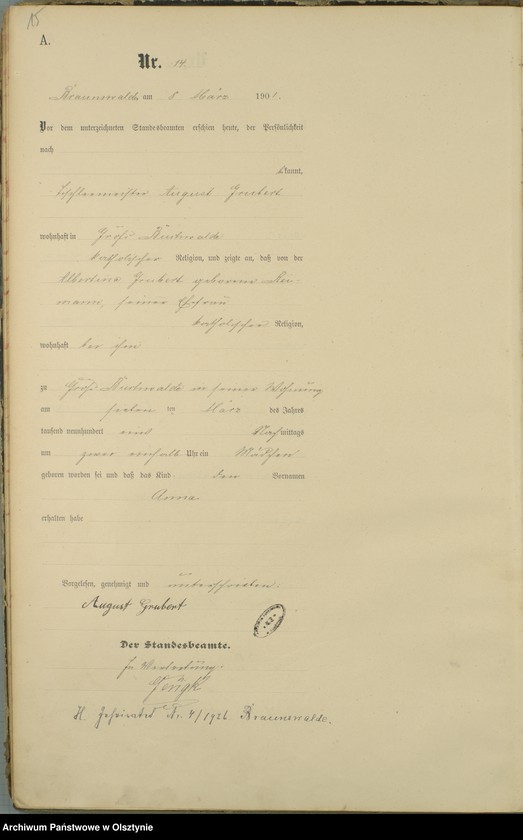 15
A.
Nr. 14.
Braunswalde am 8 März 1901.
Vor dem unterzeichneten Standesbeamten erschien heute, der Persönlichkeit
nach
kannt,
Tischlermeister August Grubert
wohnhaft in Groß Buchwalde
katholischer Religion, und zeigte an, daß von der
Albertine Grubert geborene
mann, seiner Ehefrau
katholischer Religion,
wohnhaft bei ihm
zu Groß Buchwalde in seiner Wohnung
am des Jahres
März
tausend neunhundert ein Nachmittags
um zwei einhalb Uhr ein Mädchen
geboren worden sei und daß das Kind den Vornamen
Anna
erhalten habe
Vorgelesen, genehmigt und unterschrieben.
August Grubert
Der Standesbeamte.
In Vertretung.
H. Geheiratet Nr. 4/1926 Braunswalde.
Archiwum Państwowe w Olsztynie